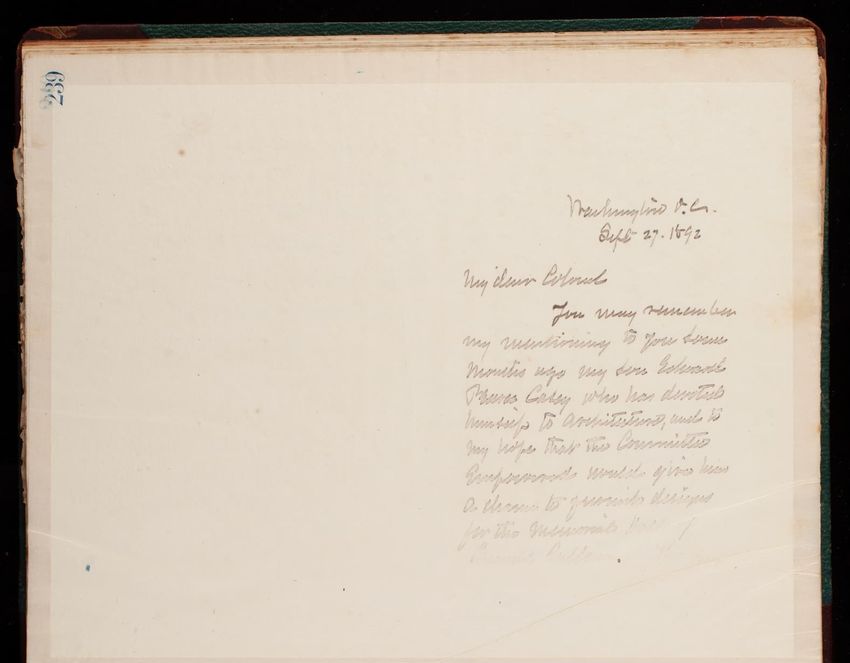 239
Washington D.C.
Sept 27. 1892
My dear Colonel
You may remember
my mentioning to you some
months ago my son Edward
Pearce Casey who has devoted
himself to Architecture, and to
my hope that the Committee
Empowered would give him
a chance to furnish designs
for the Memorial Hall of
General Cullum.